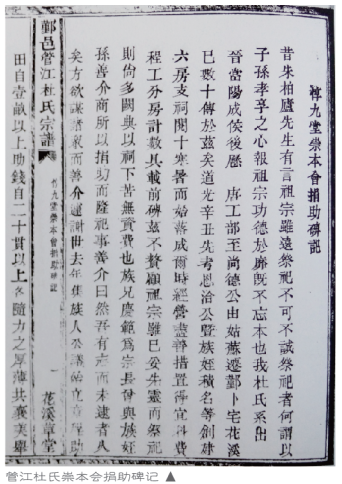 九堂崇本會捐助碑記
昔朱柏廬先生有言祖宗雖遠祭祀不可不誠祭祀者何謂以
子孫孝享之心報祖宗功德於靡既不忘本也我杜氏系出
晉當陽成侯後歷 唐工部至尚德公由姑蘇遷鄞卜宅花溪
已數十傳於茲矣道光辛丑先考思洽公暨族姪積名等創建
六房支祠閱十寒暑而始成爾時經營盡善措置得宜料費
程工分房計數具載前碑茲不贅顧祖宗雖已妥先靈而祭祀
則尚多闕典以祠下苦無資費也族兄慶範為宗長曾與族姪
孫善介商所以捐助而隆祀事善介曰然吾有志而未逮者
矣方欲謀諸衆而善介遽謝世去年集族人公議始立章程助
田自壹畝以上助錢自二十貫以上各隨力之厚薄共襄美舉
鄞邑管江杜氏宗譜
九堂崇本會捐助碑記
一
花溪草堂
管江杜氏崇本会捐助碑记 ▲